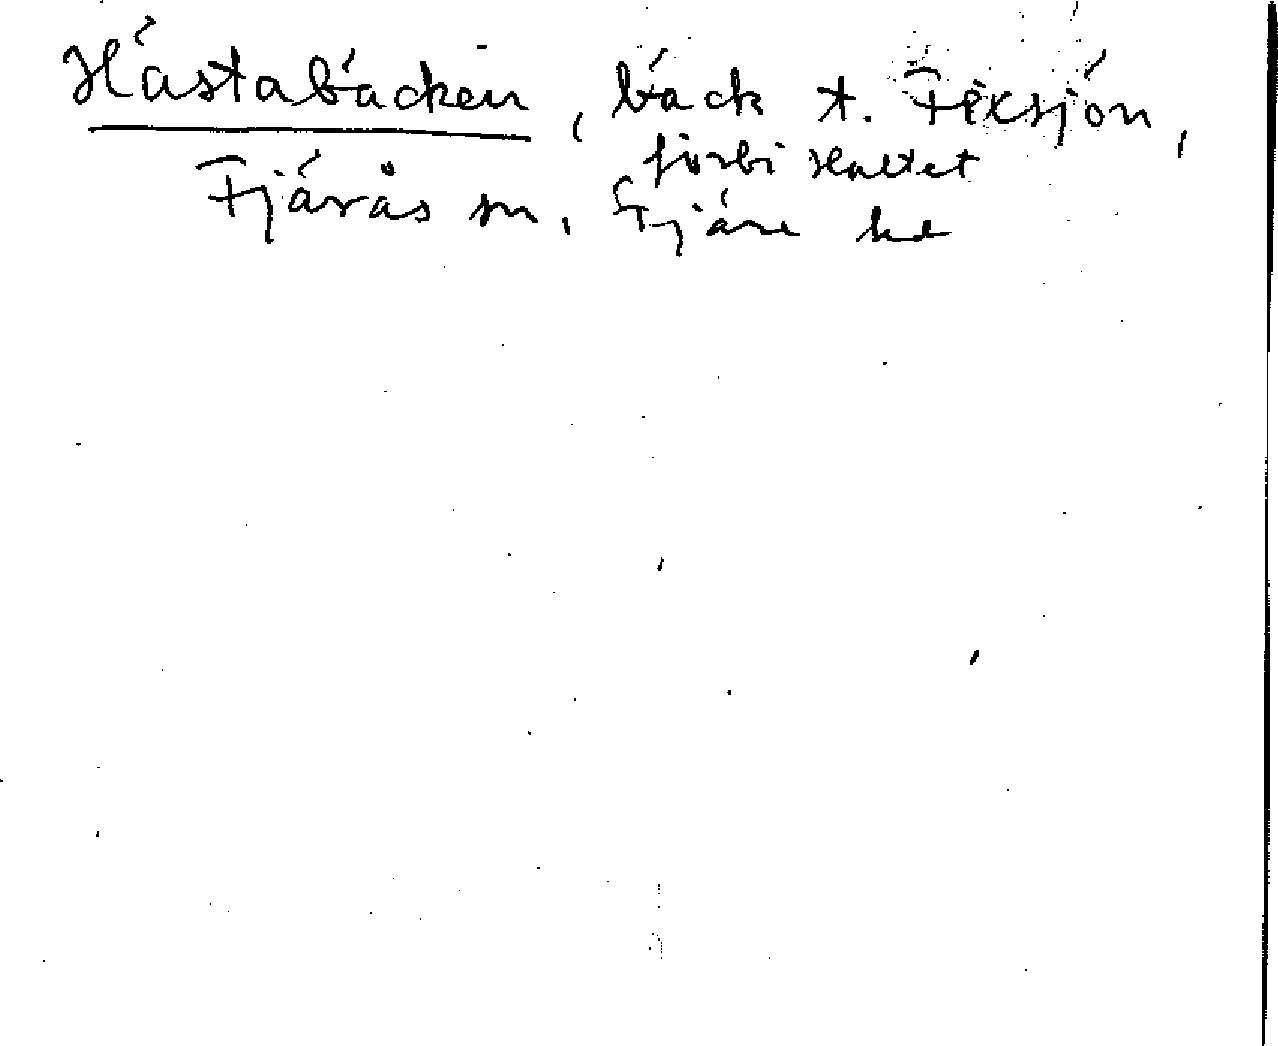 Hästabäcken, bäck t. Fexsjön,
förbi Hultet
Fjärås sn, Fjäre hd